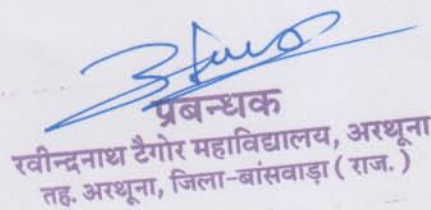 प्रबन्धक
रवीन्द्रनाथ टैगोर महाविद्यालय, अरथूना
तह. अरथूना, जिला-बांसवाड़ा ( राज. )